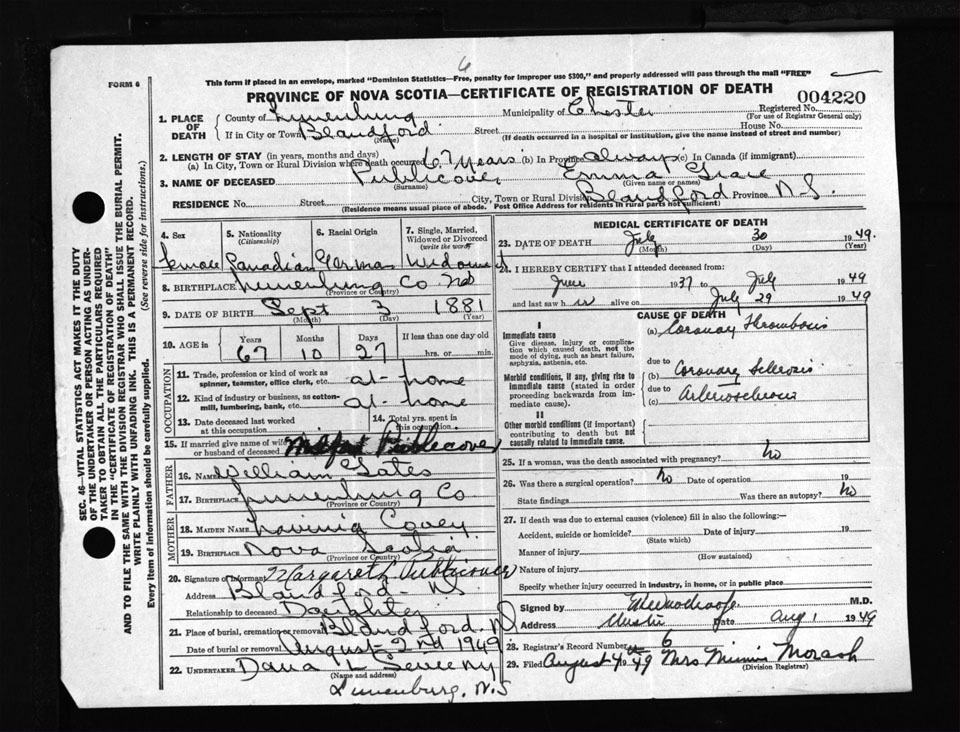 6
This form if placed in an envelope, marked "Dominion Statistics—Free, penalty for improper use $300," and properly addressed will pass through the mail "FREE"
FORM 6
PROVINCE OF NOVA SCOTIA—CERTIFICATE OF REGISTRATION OF DEATH
004220
1. PLACE OF DEATH
County of Lunenburg Municipality of Chester Registered No.
(For use of Registrar General only)
If in City or Town Blandford Street House No.
(Name) (If death occurred in a hospital or institution, give the name instead of street and number)
2. LENGTH OF STAY (in years, months and days)
(a) In City, Town or Rural Division where death occurred 67 years (b) In Province always (c) In Canada (if immigrant)
3. NAME OF DECEASED Publicover Emma Grace
(Surname) (Given name or names)
RESIDENCE No. Street City, Town or Rural Division Blandford Province N-S.
(Residence means usual place of abode. Post Office Address for residents in rural parts not sufficient)
4. Sex
female
5. Nationality (Citizenship)
Canadian
6. Racial Origin
German
7. Single, Married, Widowed or Divorced (write the word)
Widowed
8. BIRTHPLACE Lunenburg Co
(Province or Country)
9. DATE OF BIRTH Sept 3 1881
(Month) (Day) (Year)
10. AGE in
Years Months Days If less than one day old
67 10 27 hrs. or min.
OCCUPATION
11. Trade, profession or kind of work as spinner, teamster, office clerk, etc. at-home
12. Kind of industry or business, as cotton-mill, lumbering, bank, etc. at-home
13. Date deceased last worked at this occupation
14. Total yrs. spent in this occupation
15. If married give name of wife or husband of deceased Publicover
FATHER
16. Name William Gates
17. Birthplace Lunenburg Co
(Province or Country)
MOTHER
18. Maiden Name Lavinia Covey
19. Birthplace Nova Scotia
(Province or Country)
20. Signature of Informant Margaret L Publicover
Address Blandford-NS
Relationship to deceased Daughter
21. Place of burial, cremation or removal Blandford. NS
Date of burial or removal August 2nd 1949
22. UNDERTAKER Dana L Sweeny
(Name and address)
Lunenburg. N.S
MEDICAL CERTIFICATE OF DEATH
23. DATE OF DEATH July 30 1949.
(Month) (Day) (Year)
24. I HEREBY CERTIFY that I attended deceased from:
June 1937 July 1949
and last saw h er alive on July 29 1949
CAUSE OF DEATH
I
Immediate cause
Give disease, injury or complication which caused death, not the mode of dying, such as heart failure, asphyxia, asthenia, etc.
(a) Coronary Thrombosis
due to
Morbid conditions, if any, giving rise to immediate cause (stated in order proceeding backwards from immediate cause).
(b) Coronary Sclerosis
due to
(c) Arteriosclerosis
II
Other morbid conditions (if important) contributing to death but not causally related to immediate cause.
25. If a woman, was the death associated with pregnancy? no
26. Was there a surgical operation? no Date of operation 19
State findings Was there an autopsy? no
27. If death was due to external causes (violence) fill in also the following:—
Accident, suicide or homicide? Date of injury 19
(State which)
Manner of injury
(How sustained)
Nature of injury
Specify whether injury occurred in industry, in home, or in public place
Signed by M.D.
Address Chester Date Aug 1 1949
28. Registrar's Record Number 6
29. Filed August 4 1949 Mrs Minnie Morash
(Division Registrar)
SEC. 46—VITAL STATISTICS ACT MAKES IT THE DUTY
OF THE UNDERTAKER OR PERSON ACTING AS UNDER-
TAKER TO OBTAIN ALL THE PARTICULARS REQUIRED
IN THE "CERTIFICATE OF REGISTRATION OF DEATH"
AND TO FILE THE SAME WITH THE DIVISION REGISTRAR WHO SHALL ISSUE THE BURIAL PERMIT.
WRITE PLAINLY WITH UNFADING INK. THIS IS A PERMANENT RECORD.
Every item of information should be carefully supplied. (See reverse side for instructions.)